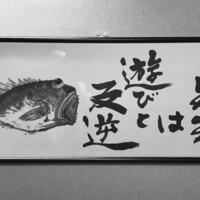 は
遊びと
反逆